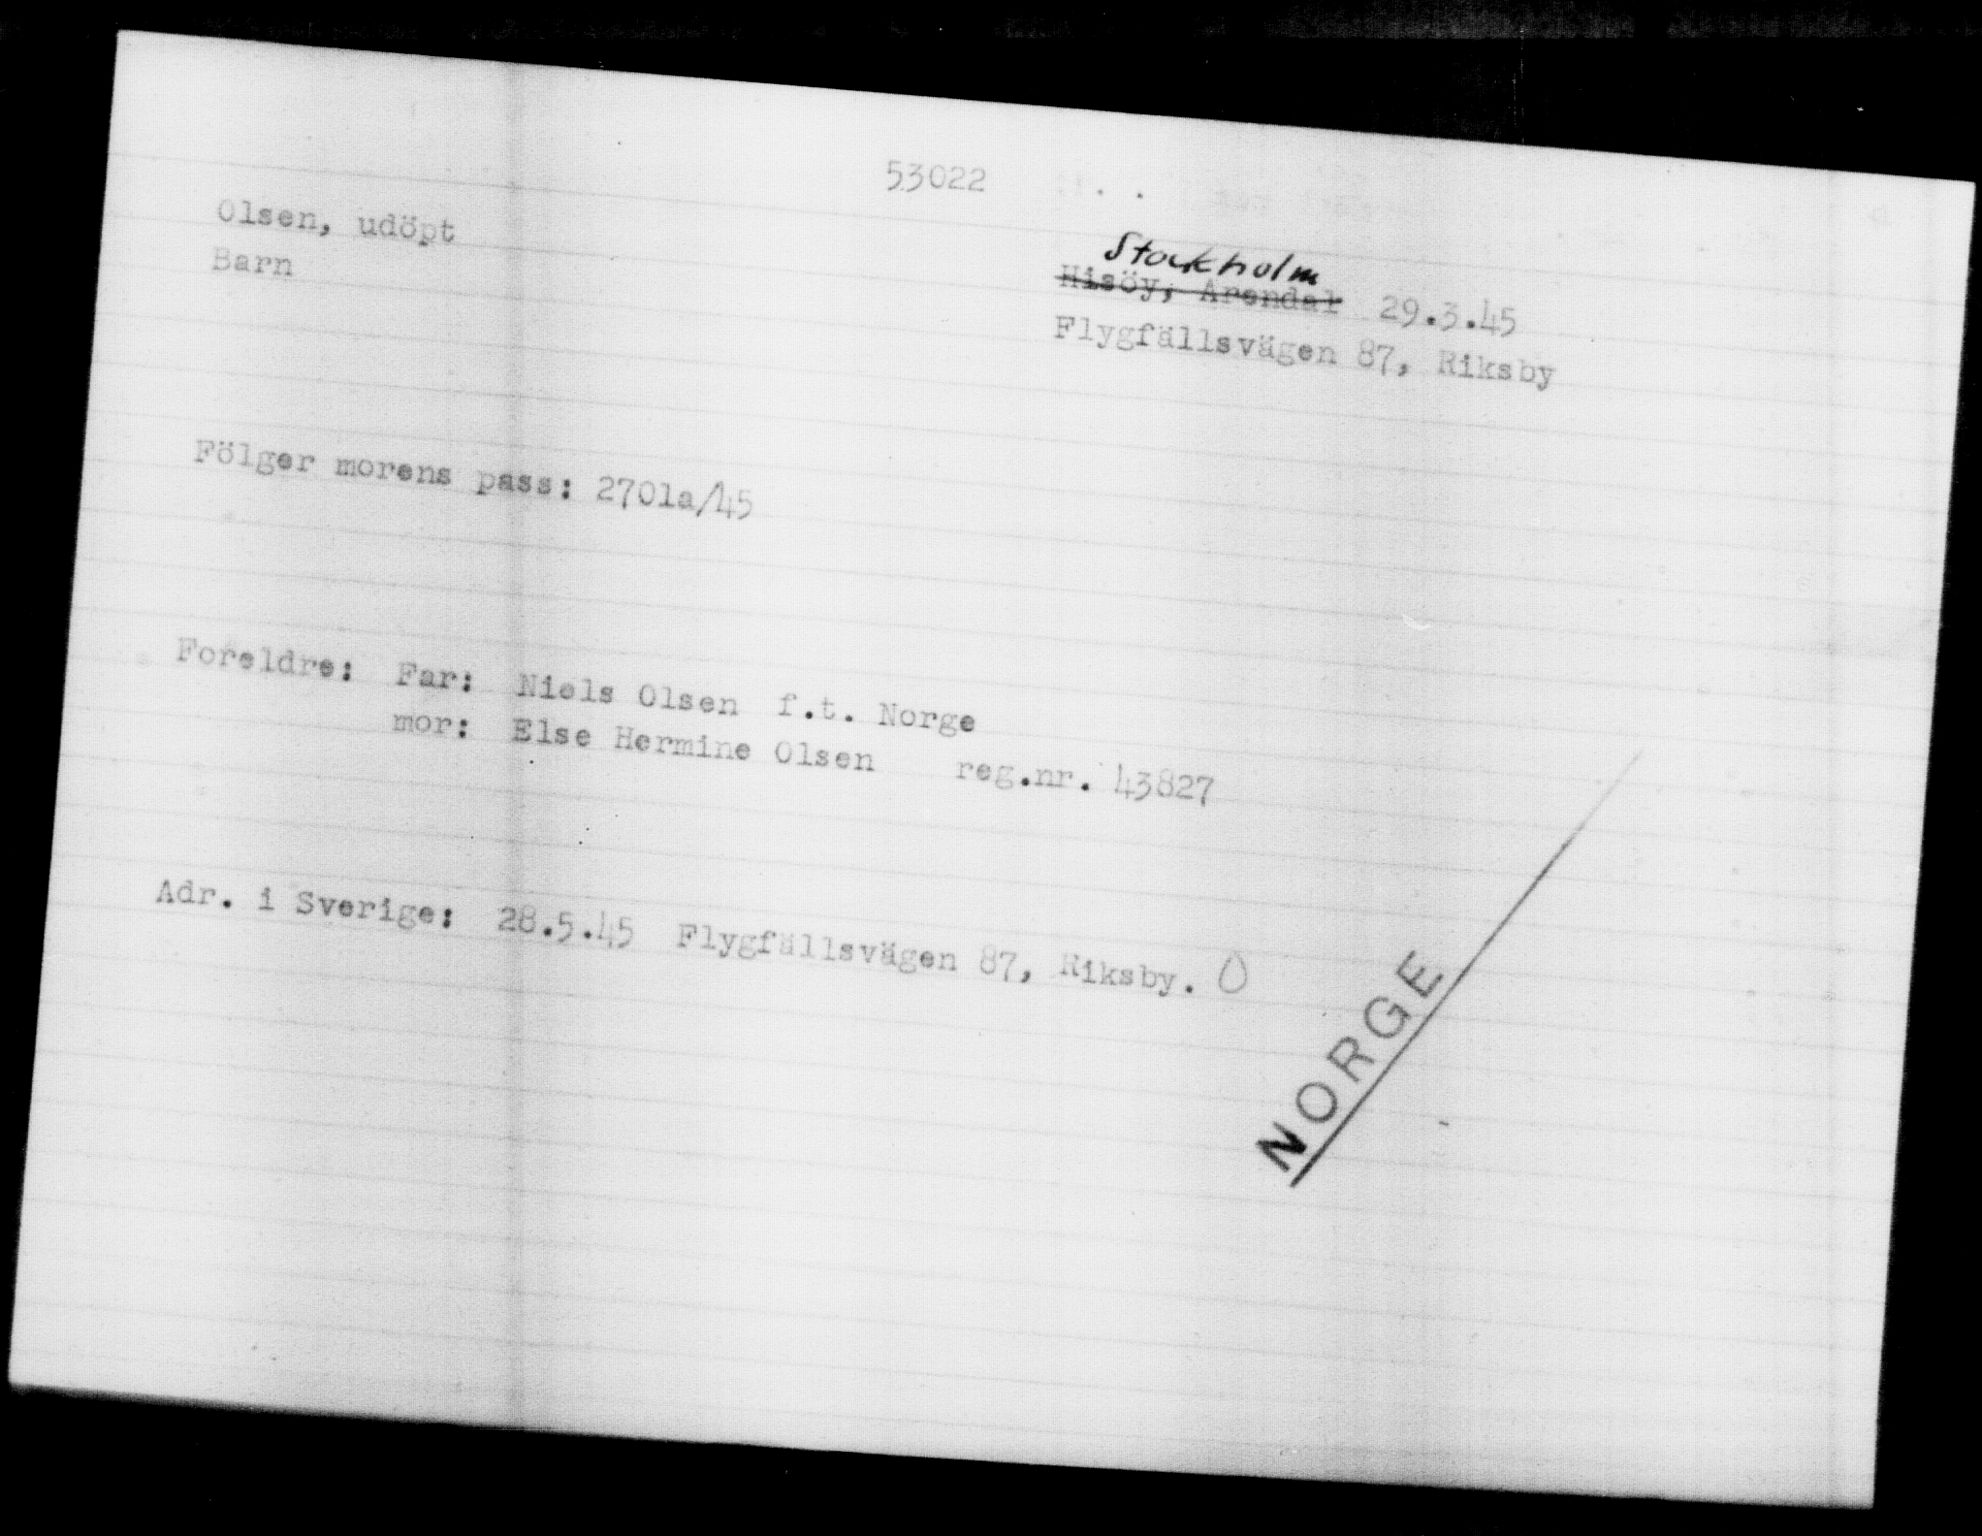 53022
Olsen, udöpt
Barn
Stockholm
Hisöy, Arendal 29.3.45
Flygfällsvägen 87, Riksby
Fölger morens pass: 2701a/45
Foreldre: Far: Niels Olsen f.t. Norge
mor: Else Hermine Olsen reg.nr. 43827
Adr. i Sverige: 28.5.45 Flygfällsvägen 87, Riksby. O
NORGE